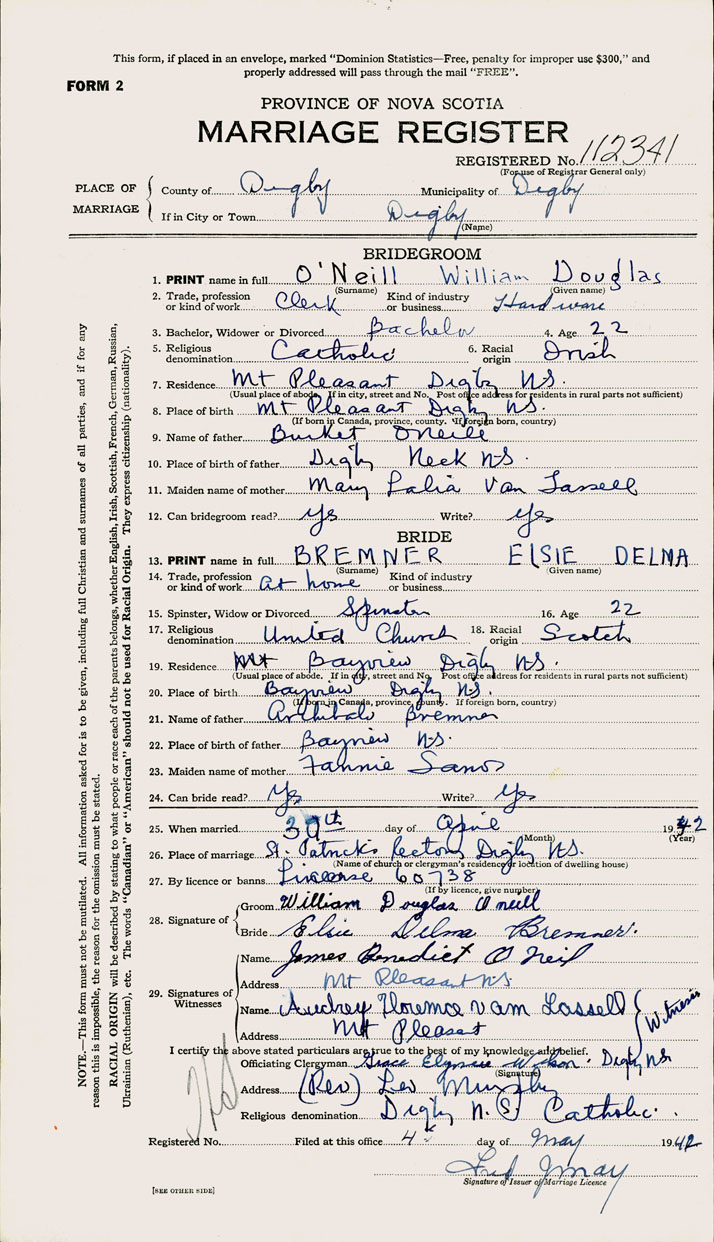 This form, if placed in an envelope, marked "Dominion Statistics—Free, penalty for improper use $300," and
properly addressed will pass through the mail "FREE".
FORM 2
PROVINCE OF NOVA SCOTIA
MARRIAGE REGISTER
REGISTERED No. 112341
(For use of Registrar General only)
PLACE OF MARRIAGE
County of Digby Municipality of Digby
If in City or Town Digby
(Name)
BRIDEGROOM
1. PRINT name in full O'Neill William Douglas
(Surname) (Given name)
2. Trade, profession or kind of work Clerk Kind of industry or business Hardware
3. Bachelor, Widower or Divorced Bachelor 4. Age 22
5. Religious denomination Catholic 6. Racial origin Irish
7. Residence Mt Pleasant Digby NS.
(Usual place of abode. If in city, street and No. Post office address for residents in rural parts not sufficient)
8. Place of birth Mt Pleasant Digby NS.
(If born in Canada, province, county. If foreign born, country)
9. Name of father Burket O'Neill
10. Place of birth of father Digby Neck NS.
11. Maiden name of mother Mary Lalia Van Tassell
12. Can bridegroom read? yes Write? yes
BRIDE
13. PRINT name in full BREMNER ElSIE DELMA
(Surname) (Given name)
14. Trade, profession or kind of work at home Kind of industry or business
15. Spinster, Widow or Divorced Spinster 16. Age 22
17. Religious denomination United Church 18. Racial origin Scotch
19. Residence Mt Bayview Digby NS.
(Usual place of abode. If in city, street and No. Post office address for residents in rural parts not sufficient)
20. Place of birth Bayview Digby NS.
(If born in Canada, province, county. If foreign born, country)
21. Name of father Archibald Bremner
22. Place of birth of father Bayview NS.
23. Maiden name of mother Fannie
24. Can bride read? Yes Write? Yes
25. When married 30th day of April 1942
(Month) (Year)
26. Place of marriage St. Patricks Rectory Digby NS.
(Name of church or clergyman's residence or location of dwelling house)
27. By licence or banns 60738
(If by licence, give number)
28. Signature of
Groom William Douglas O'neill
Bride Elsie Delma Bremner.
29. Signatures of Witnesses
Name James Benedict O'Neil
Address Mt Pleasant NS
Name Audrey Florence van Tassell
Address Mt Pleasant
Witness
I certify the above stated particulars are true to the best of my knowledge and belief.
Officiating Clergyman Grace Digby NS
(Signature)
Address (Rev) Leo Murphy
Religious denomination Digby N.S. Catholic.
Registered No. Filed at this office 4 day of May 1942
Signature of Issuer of Marriage Licence
[SEE OTHER SIDE]
NOTE.—This form must not be mutilated. All information asked for is to be given, including full Christian and surnames of all parties, and if for any
reason this is impossible, the reason for the omission must be stated.
RACIAL ORIGIN will be described by stating to what people or race each of the parents belongs, whether English, Irish, Scottish, French, German, Russian,
Ukrainian (Ruthenian), etc. The words "Canadian" or "American" should not be used for Racial Origin. They express citizenship (nationality).